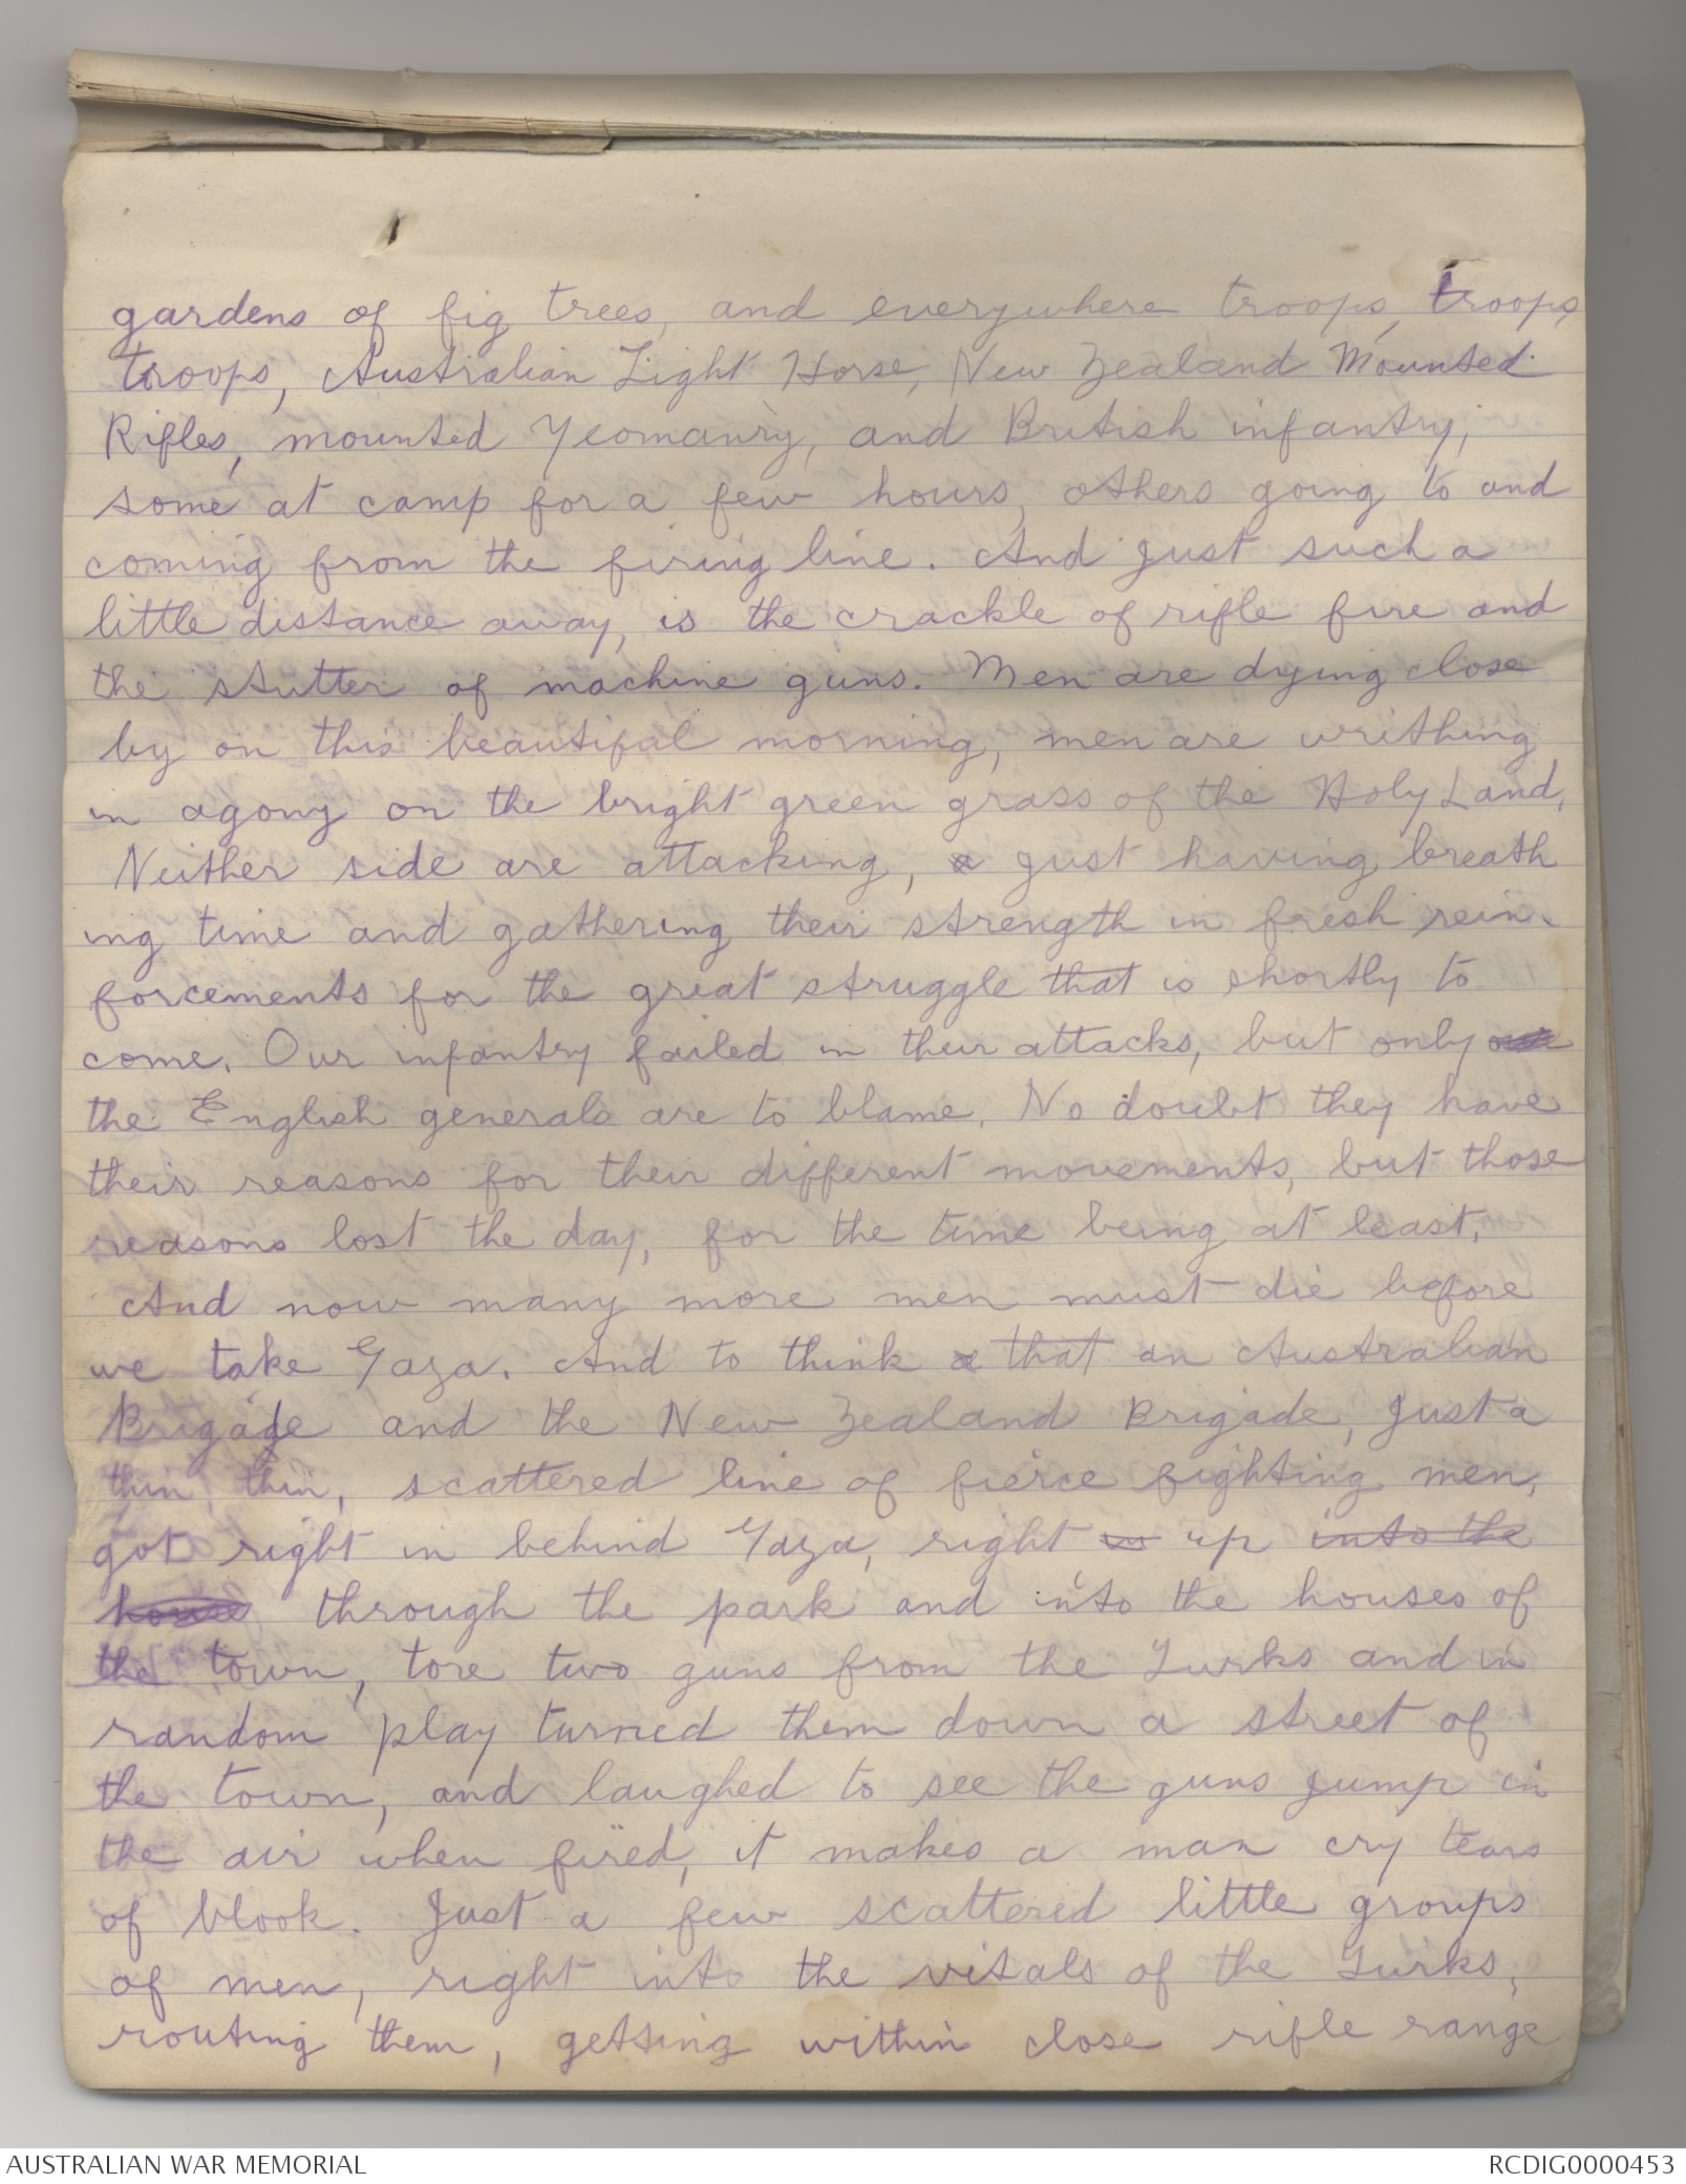 gardens of fig trees, and everywhere troops, troops,
troops, Australian Light Horse, New Zealand Mounted
Rifles, mounted Yeomanry, and British infantry;
some at camp for a few hours, others going to and
coming from the firing line. And just such a
little distance away, is the crackle of rifle fire and
the stutter of machine guns. Men are dying close
by on this beautiful morning, men are writhing
in agony on the bright green grass of the Holy Land.
Neither side are attacking, a just having breath
ing time and gathering their strength in fresh rein-
forcements for the great struggle that is shortly to
come. Our infantry failed in their attacks, but only
the English generals are to blame. No doubt they have
their reasons for their different movements, but those
reasons lost the day, for the time being at least.
And now many more men must die before
we take Gaza. And to think a that an Australian
Brigade and the New Zealand Brigade, just a
thin, thin, scattered line of fierce fighting men,
got right in behind Gaza, right in up into the
houses through the park and into the houses of
the town, tore two guns from the Turks and in
random play turned them down a street of
the town, and laughed to see the guns jump in
the air when fired, it makes a man cry tears
of blook. Just a few scattered little groups
of men, right into the vitals of the Turks,
routing them, getting within close rifle range
AUSTRALIAN WAR MEMORIAL
RCDIG0000453